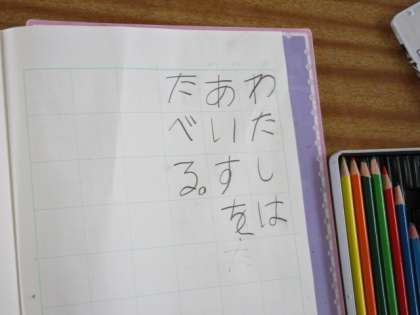 わたしは
あいすを
たべる。